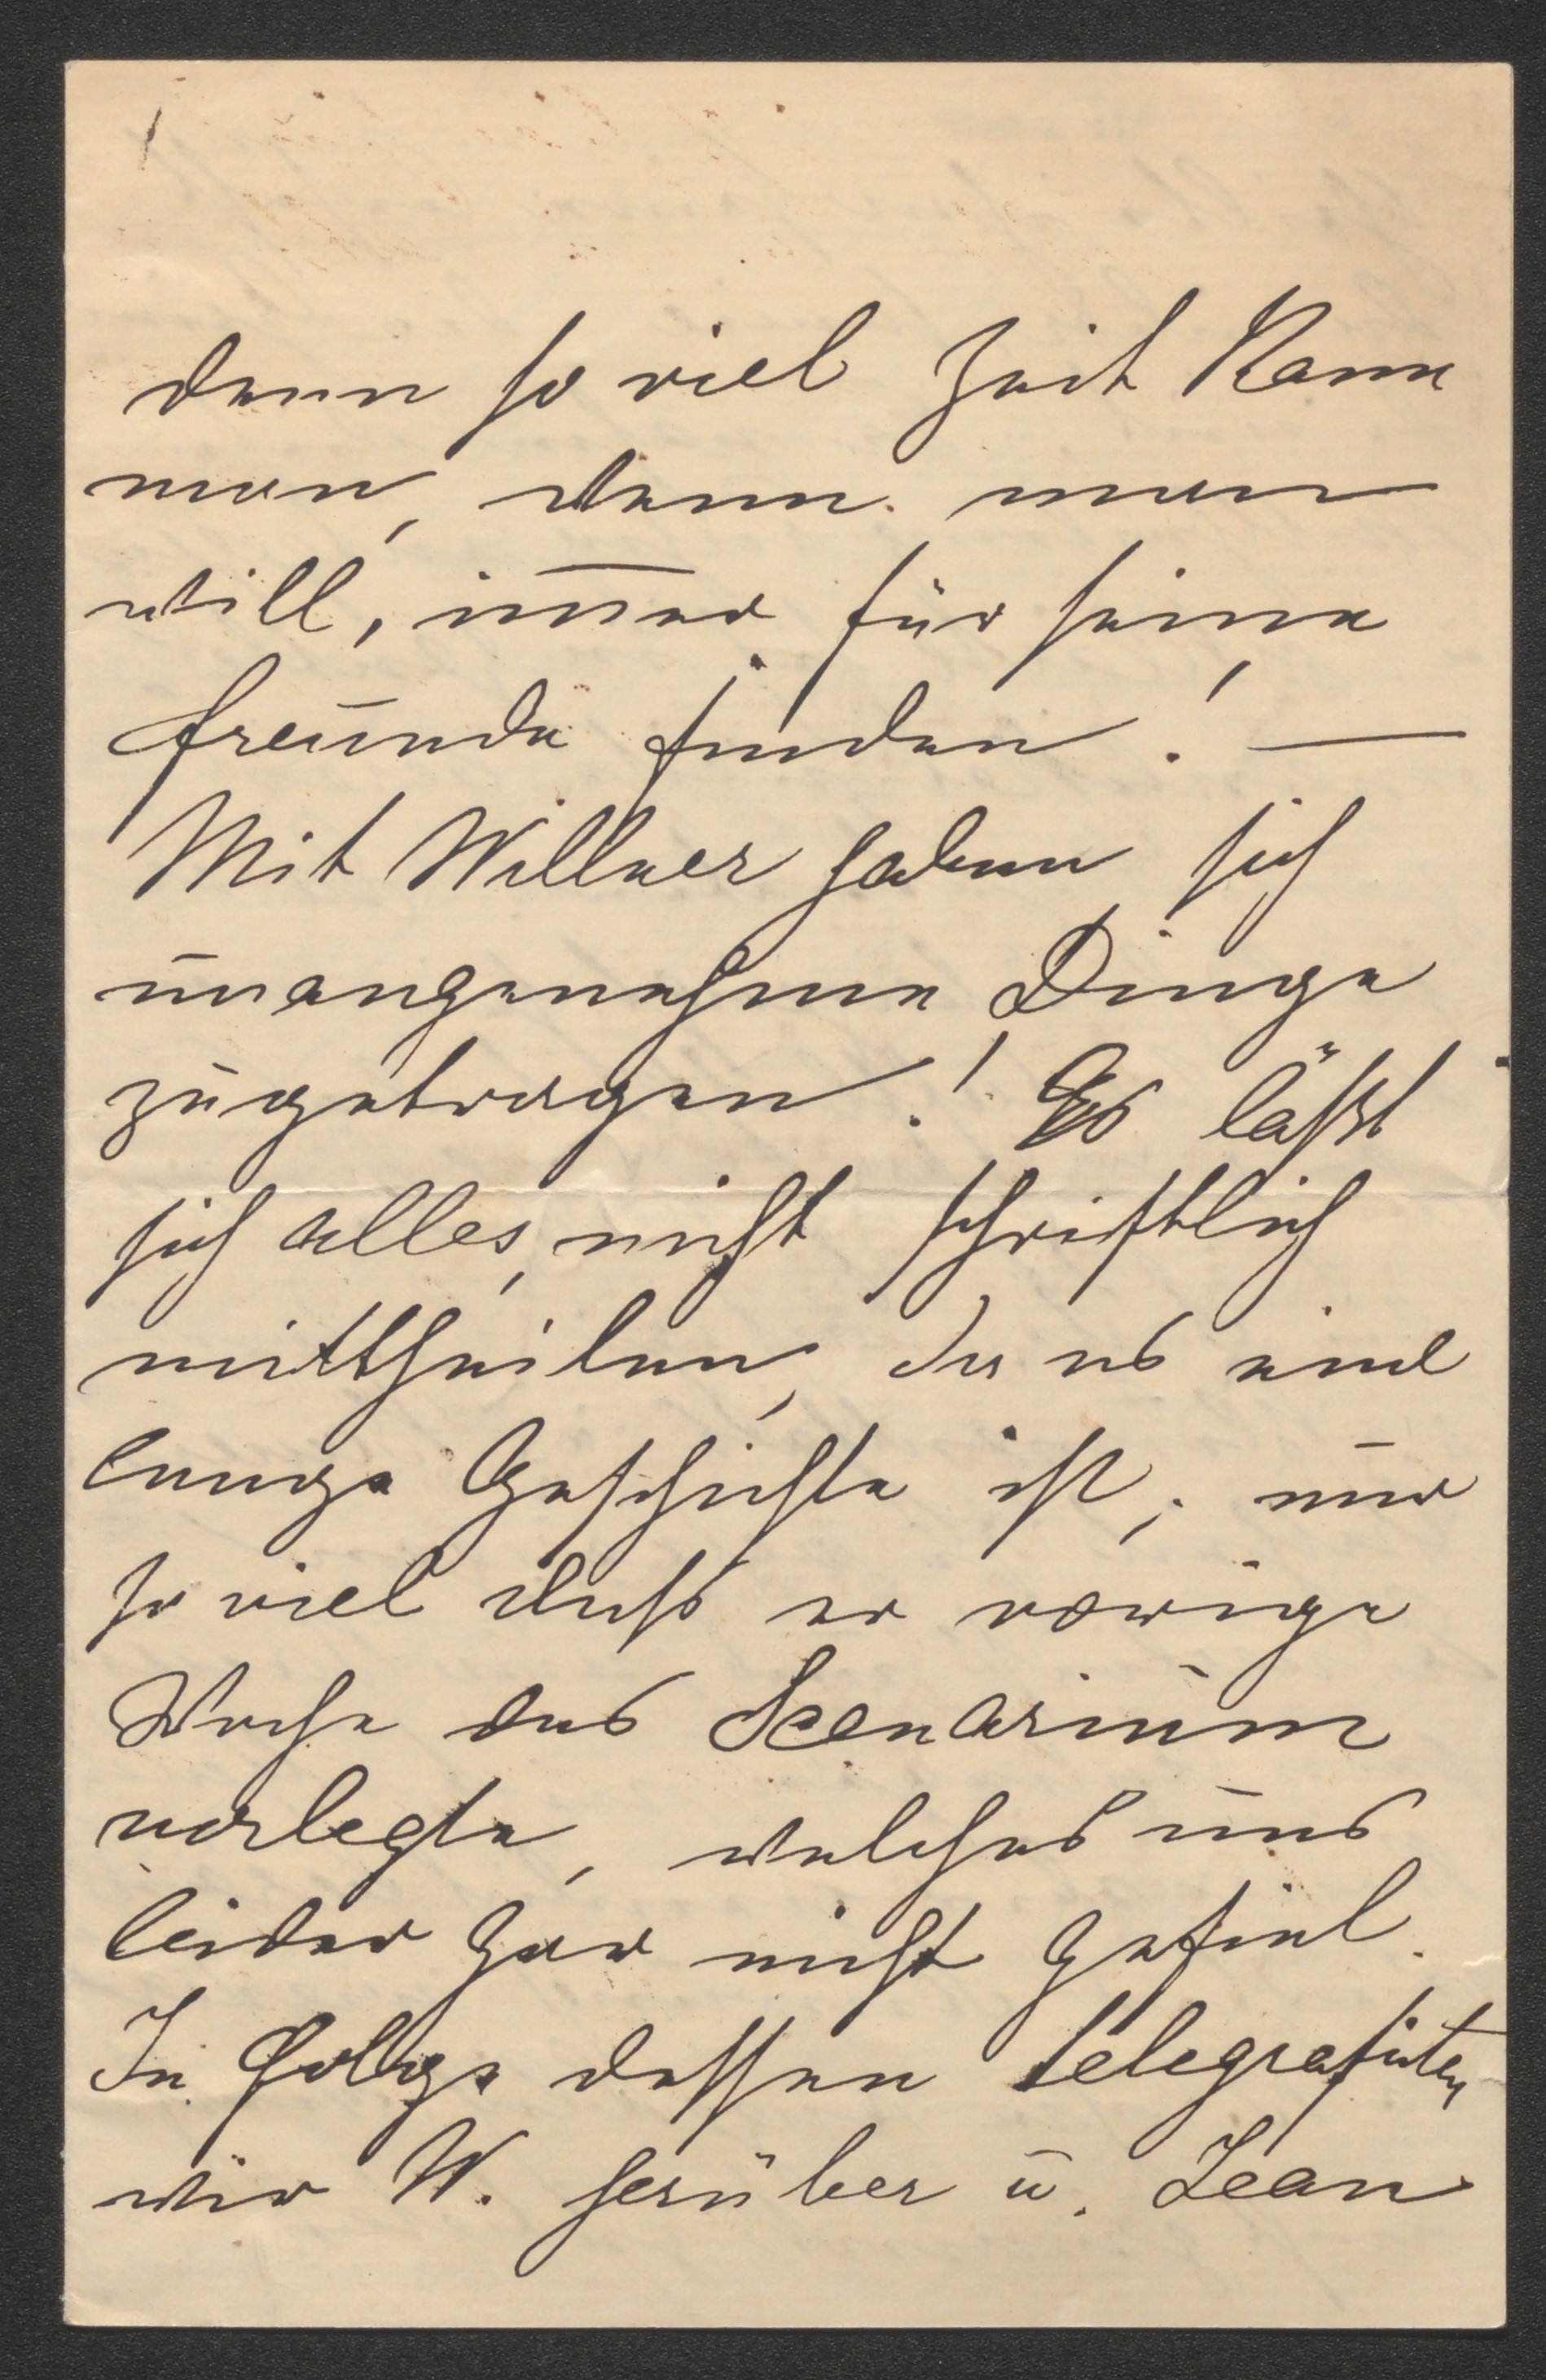 denn so viel Zeit kann
man, wenn man
will, im̅er für seine
Freunde finden! —
Mit Willner haben sich
unangenehme Dinge
zugetragen! Es läßt
sich alles, nicht schriftlich
mittheilen, da es eine
lange Geschichte ist; nur
so viel daß er vorige
Woche das Scenarium
vorlegte, welches uns
leider gar nicht gefiel.
In Folge dessen telegrafirten
wir W. herüber u. Jean